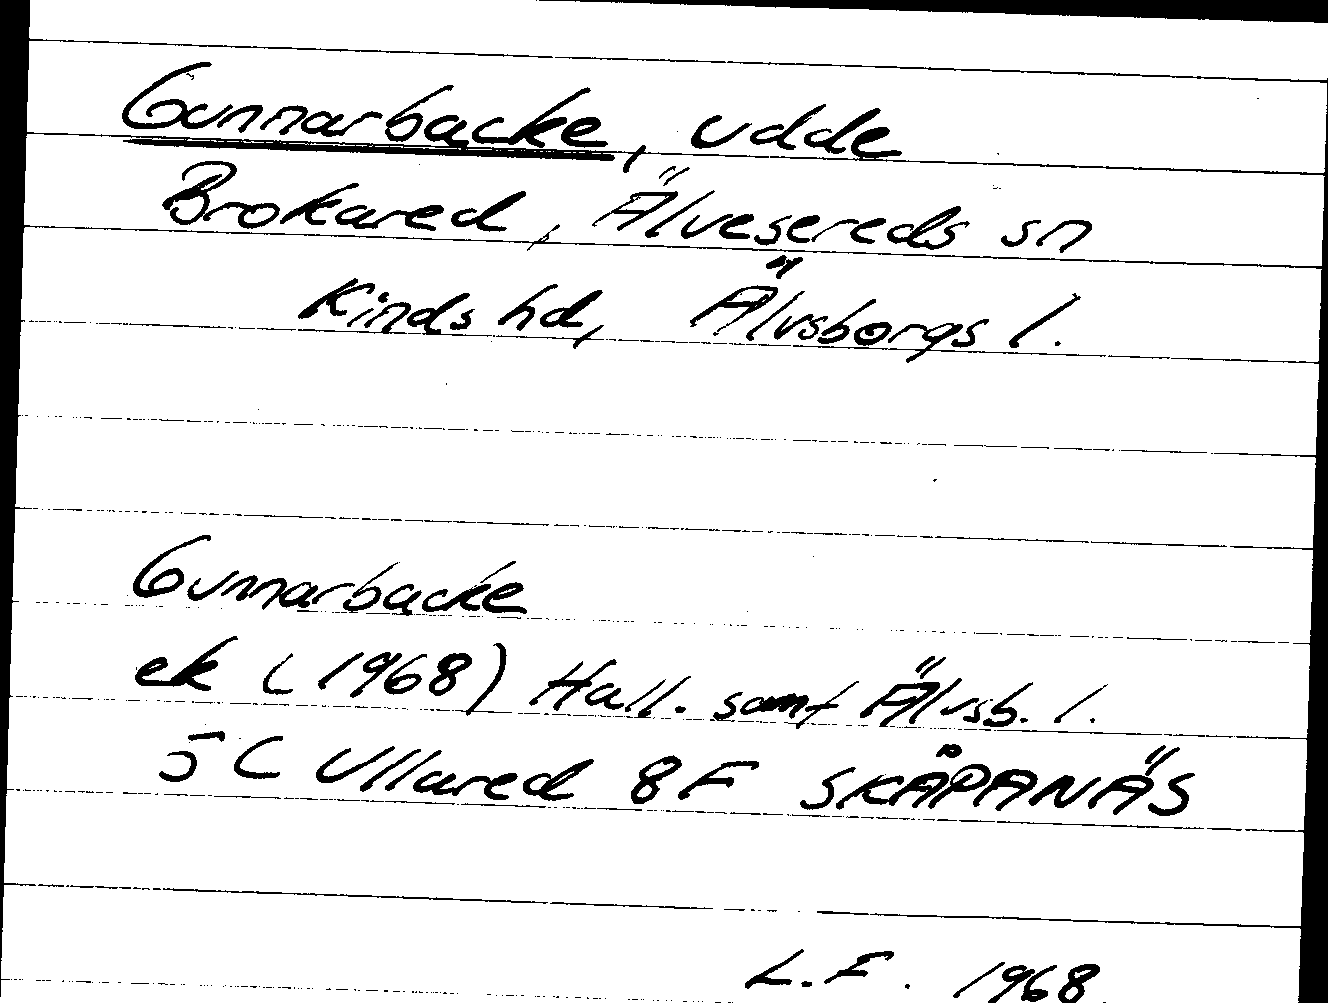 Gunnarbacke, udde
Brokared, Älvesereds sn
Kinds hd, Älvsborgs l.
Gunnarbacke
ek (1968) Hall. samt Älvsb. l.
5C Ullared 8F SKÅPANÄS
L.F. 1968